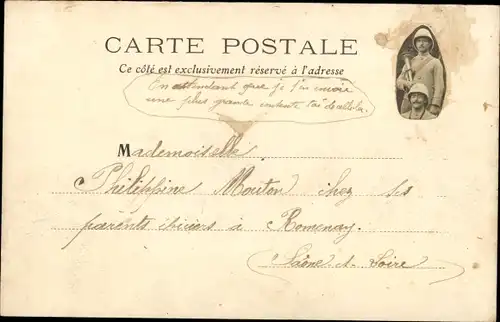 CARTE POSTALE
Ce côté est exclusivement réservé à l'adresse
En attendant que je t'en envoie
une plus grande contente toi de celle-la
Mademoiselle
Philippine Mouton chez ses
parents à Romenay
Saône-et-Loire